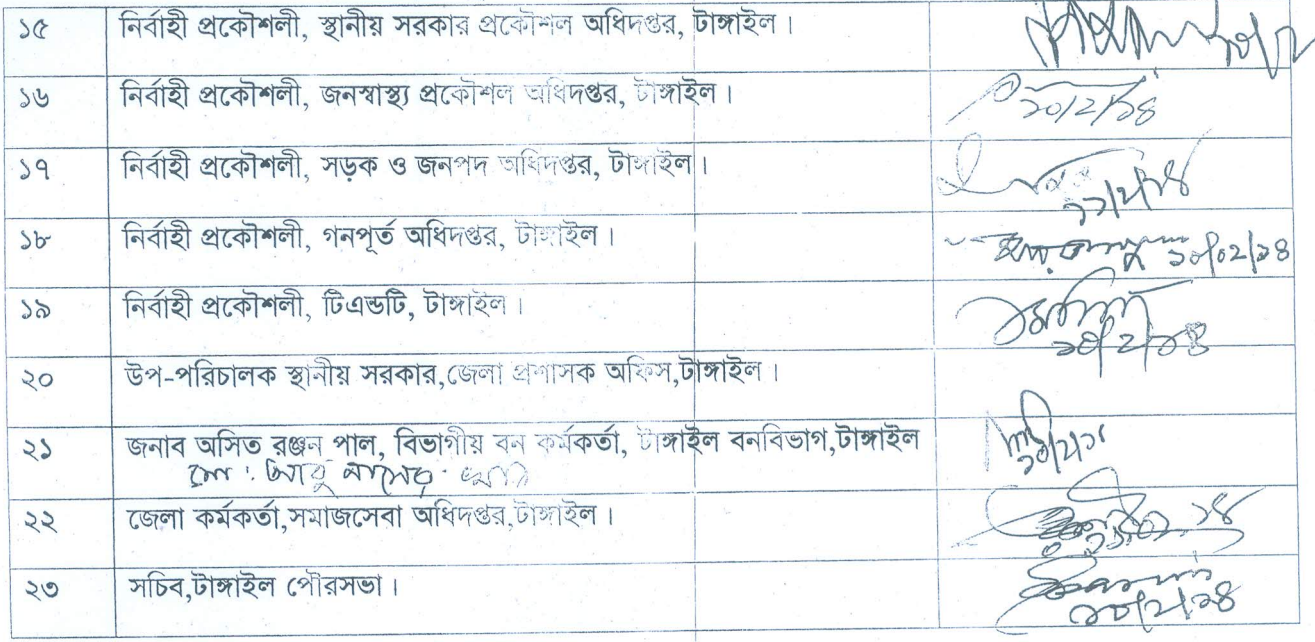 ১৫ নির্বাহী প্রকৌশলী, স্থানীয় সরকার প্রকৌশল অধিদপ্তর, টাঙ্গাইল।
১৬ নির্বাহী প্রকৌশলী, জনস্বাস্থ্য প্রকৌশল অধিদপ্তর, টাঙ্গাইল। ১০/২/১৪
১৭ নির্বাহী প্রকৌশলী, সড়ক ও জনপদ অধিদপ্তর, টাঙ্গাইল। ১১/২/১৪
১৮ নির্বাহী প্রকৌশলী, গনপূর্ত অধিদপ্তর, টাঙ্গাইল। ১০/০২/১৪
১৯ নির্বাহী প্রকৌশলী, টিএন্ডটি, টাঙ্গাইল। ১০/২/১৪
২০ উপ-পরিচালক স্থানীয় সরকার,জেলা প্রশাসক অফিস,টাঙ্গাইল।
২১ জনাব অসিত রঞ্জন পাল, বিভাগীয় বন কর্মকর্তা, টাঙ্গাইল বনবিভাগ,টাঙ্গাইল
মো: আবু নাসের
২২ জেলা কর্মকর্তা,সমাজসেবা অধিদপ্তর,টাঙ্গাইল।
২৩ সচিব,টাঙ্গাইল পৌরসভা। ১০/২/১৪